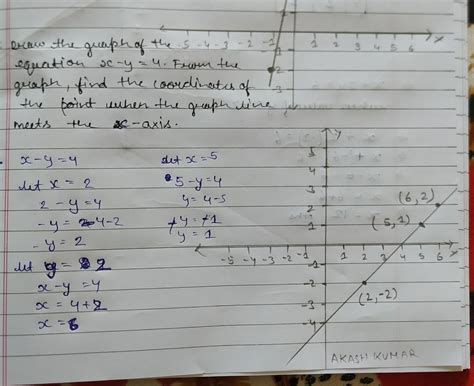 Draw the graph of the
equation x-y=4. From the
graph, find the coordinates of
the point when the graph line
meets the x-axis.
-5 -4 -3 -2 -1 1 2 3 4 5 6 x
-1
-2
-3
x-y=4
let x = 2
2-y=4
-y=4-2
-y=2
let y=2
x-y=4
x = 4+2
x=6
let x=5
5-y=4
y=4-5
+y=+1
y=1
y
5
4
3
2
1
-5 -4 -3 -2 -1 1 2 3 4 5 6 x
-1
-2
-3
-4
(6,2)
(5,1)
(2,-2)
AKASH KUMAR